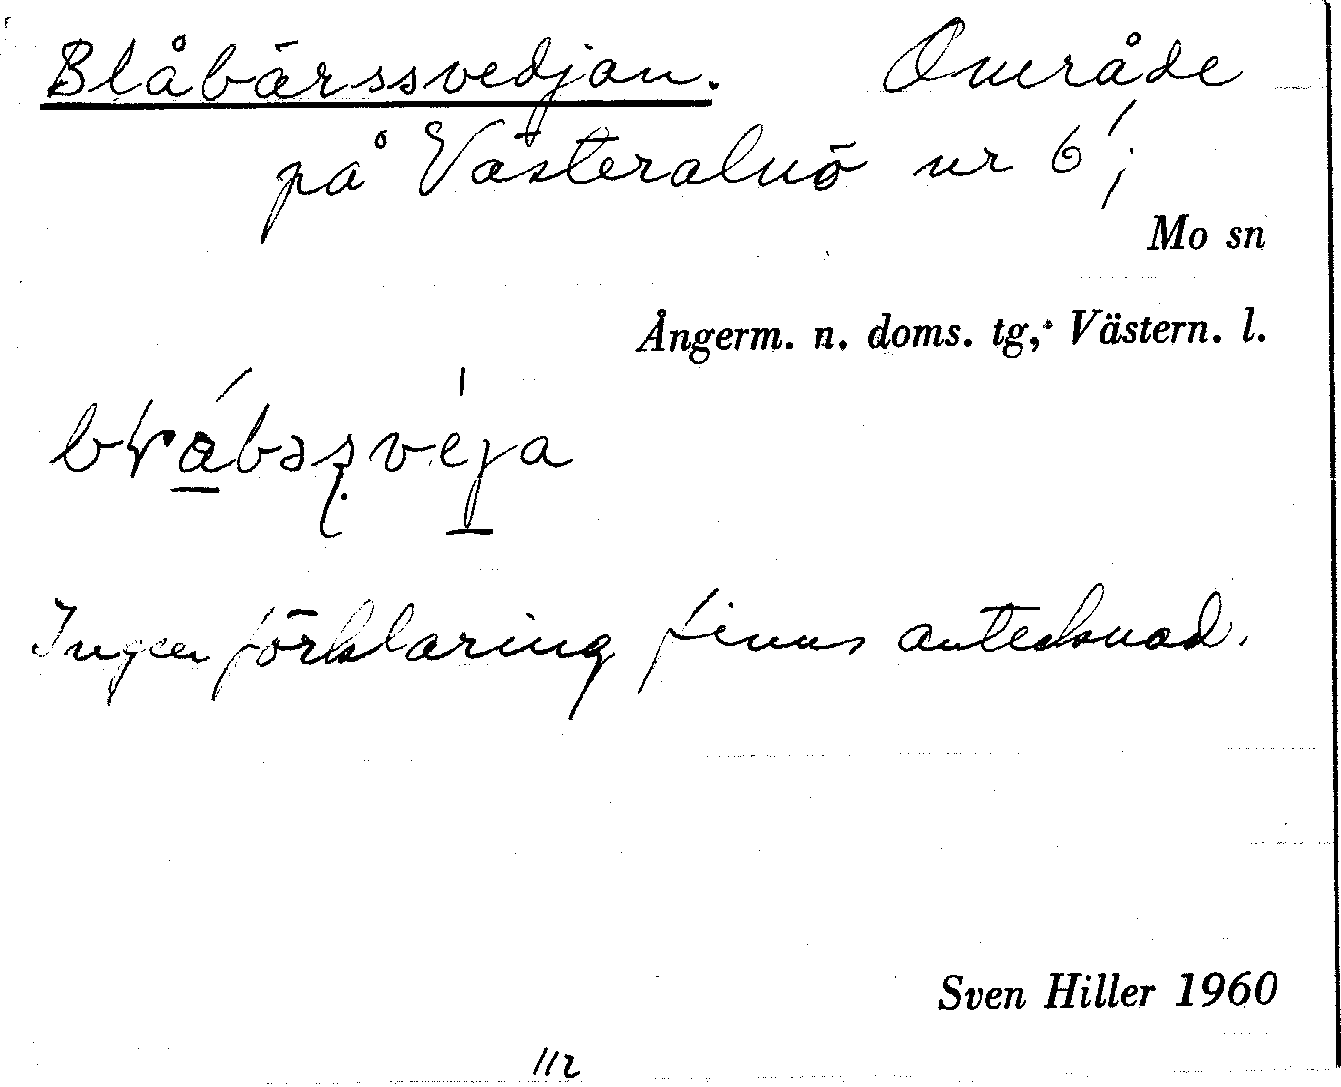 Blåbärssvedjan. Område
på Västeralnö nr 6';
Mo sn
Ångerm. n. doms. tg, Västern. l.
Ingen förklaring finns antecknad.
Sven Hiller 1960
112